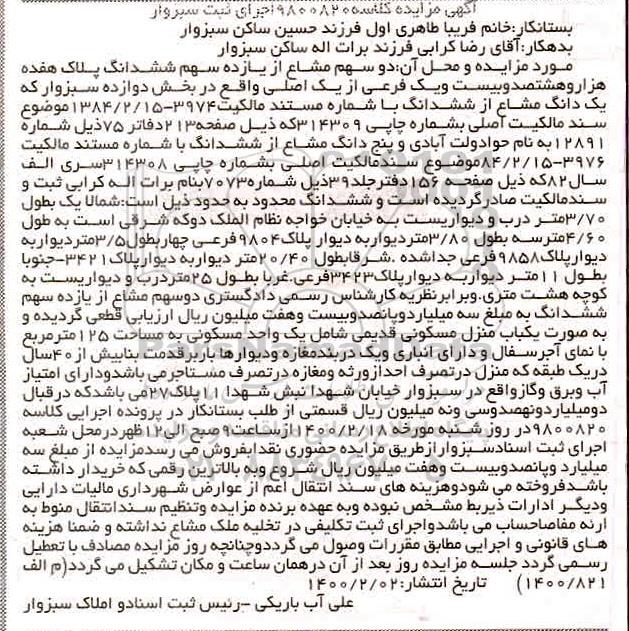 آگهی مزایده کلاسه۹۸۰۰۸۲۰اجرای ثبت سبزوار
بستانکار:خانم فریبا طاهری اول فرزند حسین ساکن سبزوار
بدهکار:آقای رضا کرابی فرزند برات اله ساکن سبزوار
مورد مزایده و محل آن:دو سهم مشاع از یازده سهم ششدانگ پلاک هفده
هزاروهشتصدوبیست ویک فرعی از یک اصلی واقع در بخش دوازده سبزوار که
یک دانگ مشاع از ششدانگ با شماره مستند مالکیت۳۹۷۴-۱۳۸۴/۲/۱۵موضوع
سند مالکیت اصلی بشماره چاپی ۳۱۴۳۰۹که ذیل صفحه۲۱۳دفاتر ۷۵ذیل شماره
۱۲۸۹۱به نام حوادولت آبادی و پنج دانگ مشاع از ششدانگ با شماره مستند مالکیت
۳۹۷۶-۸۴/۲/۱۵موضوع سندمالکیت اصلی بشماره چاپی ۳۱۴۳۰۸سری الف
سال۸۲که ذیل صفحه ۱۵۶دفترجلد۳۹ذیل شماره۷۰۷۳بنام برات اله کرابی ثبت و
سندمالکیت صادرگردیده است و ششدانگ محدود به حدود ذیل است:شمالا یک بطول
۳/۷۰متر درب و دیواریست به خیابان خواجه نظام الملک دوکه شرقی است به طول
۴/۶۰مترسه بطول ۳/۸۰متردیواربه دیوار پلاک۹۸۰۴فرعی چهاربطول۳/۵متردیواربه
دیوارپلاک۹۸۵۸فرعی جداشده .شرقابطول ۲۰/۴۰متر دیواربه دیوارپلاک۳۴۲۱-جنوبا
بطول ۱۱متر دیواربه دیوارپلاک۳۴۲۳فرعی.غربا بطول ۲۵متردرب و دیواریست به
کوچه هشت متری.وبرابرنظریه کارشناس رسمی دادگستری دوسهم مشاع از یازده سهم
ششدانگ به مبلغ سه میلیاردوپانصدوبیست وهفت میلیون ریال ارزیابی قطعی گردیده و
به صورت یکباب منزل مسکونی قدیمی شامل یک واحد مسکونی به مساحت ۱۲۵مترمربع
با نمای آجرسفال و دارای انباری ویک دربندمغازه ودیوارها باربرقدمت بنابیش از ۴۰سال
دریک طبقه که منزل درتصرف احدازورثه ومغازه درتصرف مستاجرمی باشدودارای امتیاز
آب وبرق وگازواقع در سبزوار خیابان شهدا نبش شهدا ۱۱ پلاک۲۷می باشدکه درقبال
دومیلیاردونهصدوسی ونه میلیون ریال قسمتی از طلب بستانکار در پرونده اجرایی کلاسه
۹۸۰۰۸۲۰در روز شنبه مورخه ۱۴۰۰/۲/۱۸ ازساعت۹صبح ال۱۲ظهردرمحل شعبه
اجرای ثبت اسنادسبزوارازطریق مزایده حضوری نقدابفروش می رسدمزایده از مبلغ سه
میلیارد وپانصدوبیست وهفت میلیون ریال شروع وبه بالاترین رقمی که خریدار داشته
باشدفروخته می شودوهزینه های سند انتقال اعم از عوارض شهرداری مالیات دارایی
ودیگر ادارات ذیربط مشخص نبوده وبه عهده برنده مزایده وتنظیم سندانتقال منوط به
ارئه مفاصاحساب می باشدواجرای ثبت تکلیفی در تخلیه ملک مشاع نداشته و ضمنا هزینه
های قانونی و اجرایی مطابق مقررات وصول می گرددوچنانچه روز مزایده مصادف با تعطیل
رسمی گردد جلسه مزایده روز بعد از آن درهمان ساعت و مکان تشکیل می گردد(م الف
۱۴۰۰/۸۲۱) تاریخ انتشار:۱۴۰۰/۲/۰۲
علی آب باریکی -رئیس ثبت اسنادو املاک سبزوار